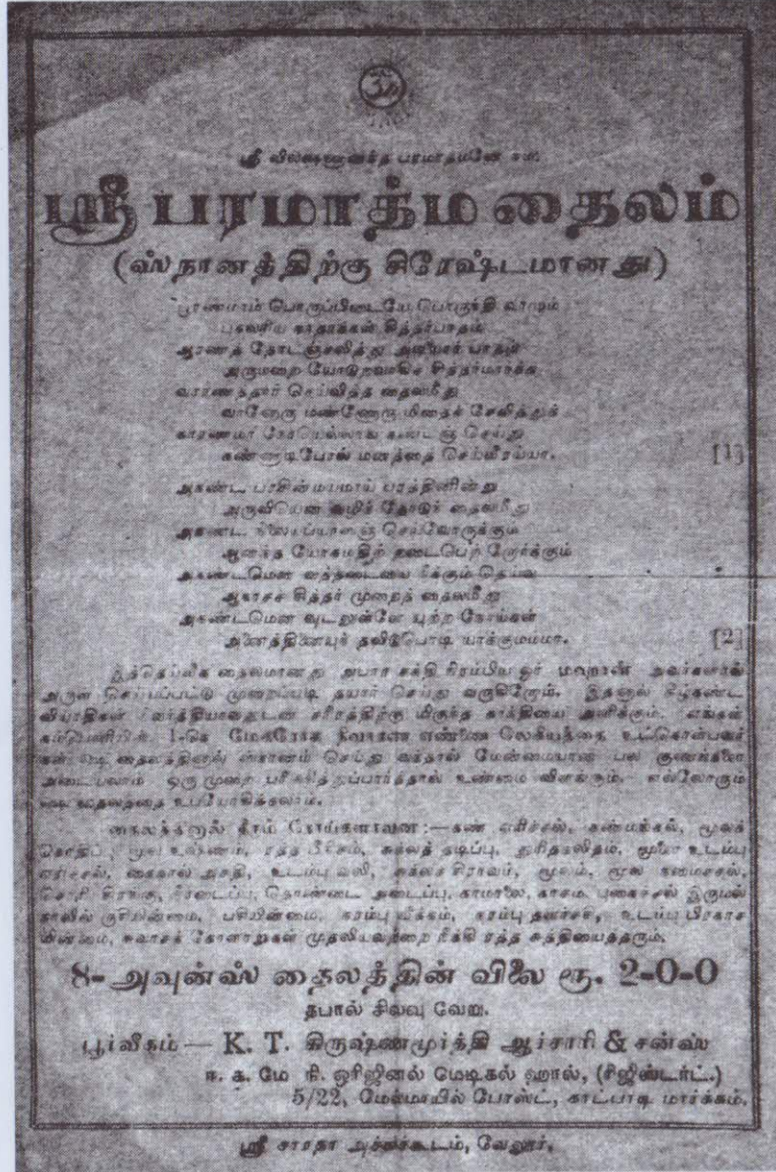 ஓம்
ஸ்ரீ பரமாத்ம நம:
ஸ்ரீ பரமாத்ம தைலம்
(ஸ்நானத்திற்கு சிரேஷ்டமானது)
பூரணமாம் பொருப்பிடையே பொருந்தி வாழும்
புகலரிய சித்தர்பாதம்
ஆரணத் தோடஞ்சலித்து அடியார் பாதம்
அருமறை
செய்வித்த தைலமீது
வானோரு மண்ணோரு மிதைச் சேவித்துக்
செய்து
கண்ணாடிபோல் மனத்தைச் செய்மீரய்யா. [1]
அகண்ட பரசின்மயமாய் பரத்தினின்று
அருவியென தைலமீது
அகண்ட செய்வோருக்கும்
ஆனந்த யோகமதிற் றடைபெற் றோர்க்கும்
அகண்டமென நீக்கும் தெய்வ
ஆகாசச் சித்தர் முறைத் தைலமீது
அகண்டமென வுடலுள்ளே யுற்ற நோய்கள்
அனைத்தினையுந் தவிடுபொடி யாக்குமம்மா. [2]
இத்தெய்வீக தைலமானது அபார சக்தி நிரம்பிய ஓர் மஹான் அவர்களால்
அருள் செய்யப்பட்டு முறைப்படி தயார் செய்து வருகிறோம். இதனால் கீழ்கண்ட
வியாதிகள் நிவர்த்தியாவதுடன் சரீரத்திற்கு மிகுந்த காந்தியை அளிக்கும். எங்கள்
கம்பெனியின் மேகரோக நிவாரண எண்ணை லேகியத்தை உட்கொள்பவர்
கள் தைலத்தினால் ஸ்நானம் செய்து வந்தால் மேன்மையான பல குணங்களை
அடையலாம். ஒரு முறை பரீக்ஷித்துப்பார்த்தால் உண்மை விளங்கும். எல்லோரும்
தைலத்தை உபயோகிக்கலாம்.
தைலத்தினால் தீரும் நோய்களாவன:—கண் எரிச்சல், மூலக்
கொதிப்பு, மூல உஷ்ணம், ரத்த பீசம், உடம்பு
எரிச்சல், கைகால் அசதி, உடம்பு வலி, மூலம், மூல
சொரி சிரங்கு, நீரடைப்பு, தொண்டை அடைப்பு, காமாலை, காசம், புகைச்சல் இருமல்
நாவில் ருசியின்மை, பசியின்மை, நரம்பு வீக்கம், நரம்பு தளர்ச்சி, உடம்பு பிரகாச
மின்மை, சுவாசக் கோளாறுகள் முதலியவற்றை நீக்கி ரத்த சுத்தியைத்தரும்.
8-அவுன்ஸ் தைலத்தின் விலை ரூ. 2-0-0
தபால் சிலவு வேறு.
பூர்வீகம் — K. T. கிருஷ்ணமூர்த்தி ஆச்சாரி & சன்ஸ்
ஈ. க. மே நி. ஒரிஜினல் மெடிகல் ஹால், (ரிஜிஸ்டர்ட்.)
5/22, மேல்மாயில் போஸ்ட், காட்பாடி மார்க்கம்.
ஸ்ரீ சாரதா அச்சுக்கூடம், வேலூர்.